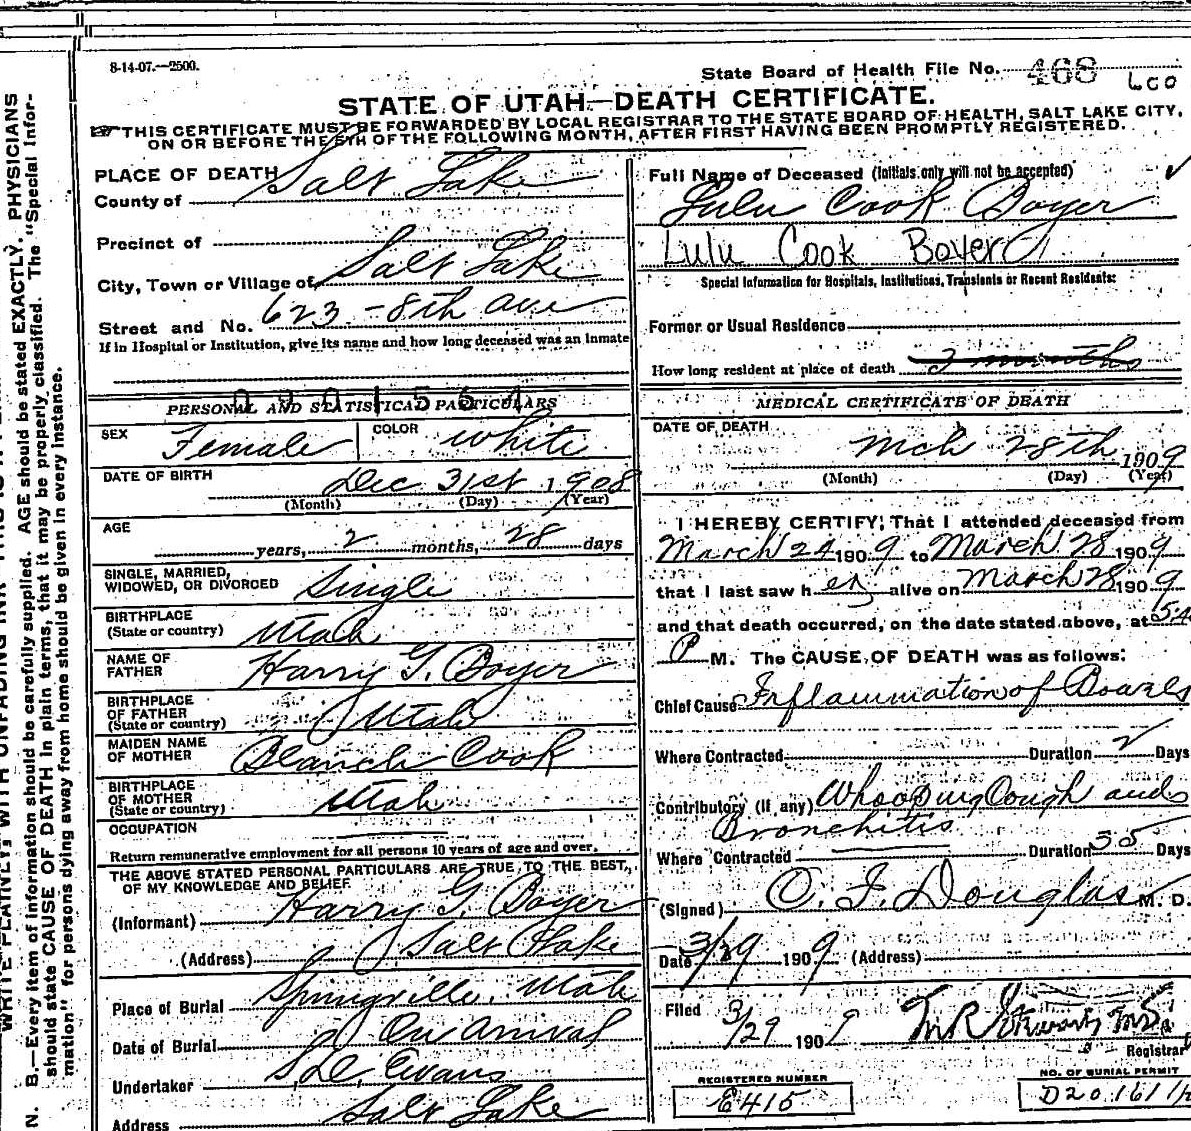 8-14-07.—2500.
State Board of Health File No. 468
600
STATE OF UTAH—DEATH CERTIFICATE.
THIS CERTIFICATE MUST BE FORWARDED BY LOCAL REGISTRAR TO THE STATE BOARD OF HEALTH, SALT LAKE CITY,
ON OR BEFORE THE 5TH OF THE FOLLOWING MONTH, AFTER FIRST HAVING BEEN PROMPTLY REGISTERED.
PLACE OF DEATH
County of Salt Lake
Precinct of
City, Town or Village of Salt Lake
Street and No. 623 - 8th ave
If in Hospital or Institution, give its name and how long deceased was an inmate
PERSONAL AND STATISTICAL PARTICULARS
SEX Female COLOR White
DATE OF BIRTH Dec 31st 1908
(Month) (Day) (Year)
AGE years, 2 months, 28 days
SINGLE, MARRIED,
WIDOWED, OR DIVORCED Single
BIRTHPLACE
(State or country) Utah
NAME OF
FATHER Harry G. Boyer
BIRTHPLACE
OF FATHER
(State or country) Utah
MAIDEN NAME
OF MOTHER Blanch Cook
BIRTHPLACE
OF MOTHER
(State or country) Utah
OCCUPATION
Return remunerative employment for all persons 10 years of age and over.
THE ABOVE STATED PERSONAL PARTICULARS ARE TRUE TO THE BEST
OF MY KNOWLEDGE AND BELIEF.
(Informant) Harry G. Boyer
(Address) Salt Lake
Place of Burial Springville, Utah
Date of Burial On Arrival
Undertaker S.D. Evans
Address Salt Lake
Full Name of Deceased (Initials only will not be accepted)
Lulu Cook Boyer
Lulu Cook Boyer
Special Information for Hospitals, Institutions, Transients or Recent Residents:
Former or Usual Residence
How long resident at place of death 2 months
MEDICAL CERTIFICATE OF DEATH
DATE OF DEATH
Mch 28th 1909
(Month) (Day) (Year)
I HEREBY CERTIFY, That I attended deceased from
March 24 1909 to March 28 1909
that I last saw her alive on March 28 1909
and that death occurred, on the date stated above, at
P M. The CAUSE OF DEATH was as follows:
Chief Cause Inflammation of Bowels
Where Contracted Duration 2 Days
Contributory (if any) Whooping Cough and
Bronchitis
Where Contracted Duration 35 Days
(Signed) O. F. Douglas M. D.
Date 3/29 1909 (Address)
Filed 3/29 1909
Registrar
REGISTERED NUMBER
E415
NO. OF BURIAL PERMIT
N. B.—Every item of information should be carefully supplied. AGE should be stated EXACTLY. PHYSICIANS
should state CAUSE OF DEATH in plain terms, that it may be properly classified. The "Special Infor-
mation" for persons dying away from home should be given in every instance.